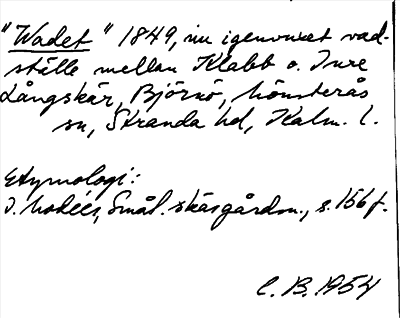 "Wadet" 1849, nu igenvuxet vad-
ställe mellan Klabb o. Inre
Långskär, Björnö, Mönsterås
sn, Stranda hd, Kalm. l.
Etymologi:
J. Modéer, Smål. skärgårdsn., s. 156 f.
C. B. 1954